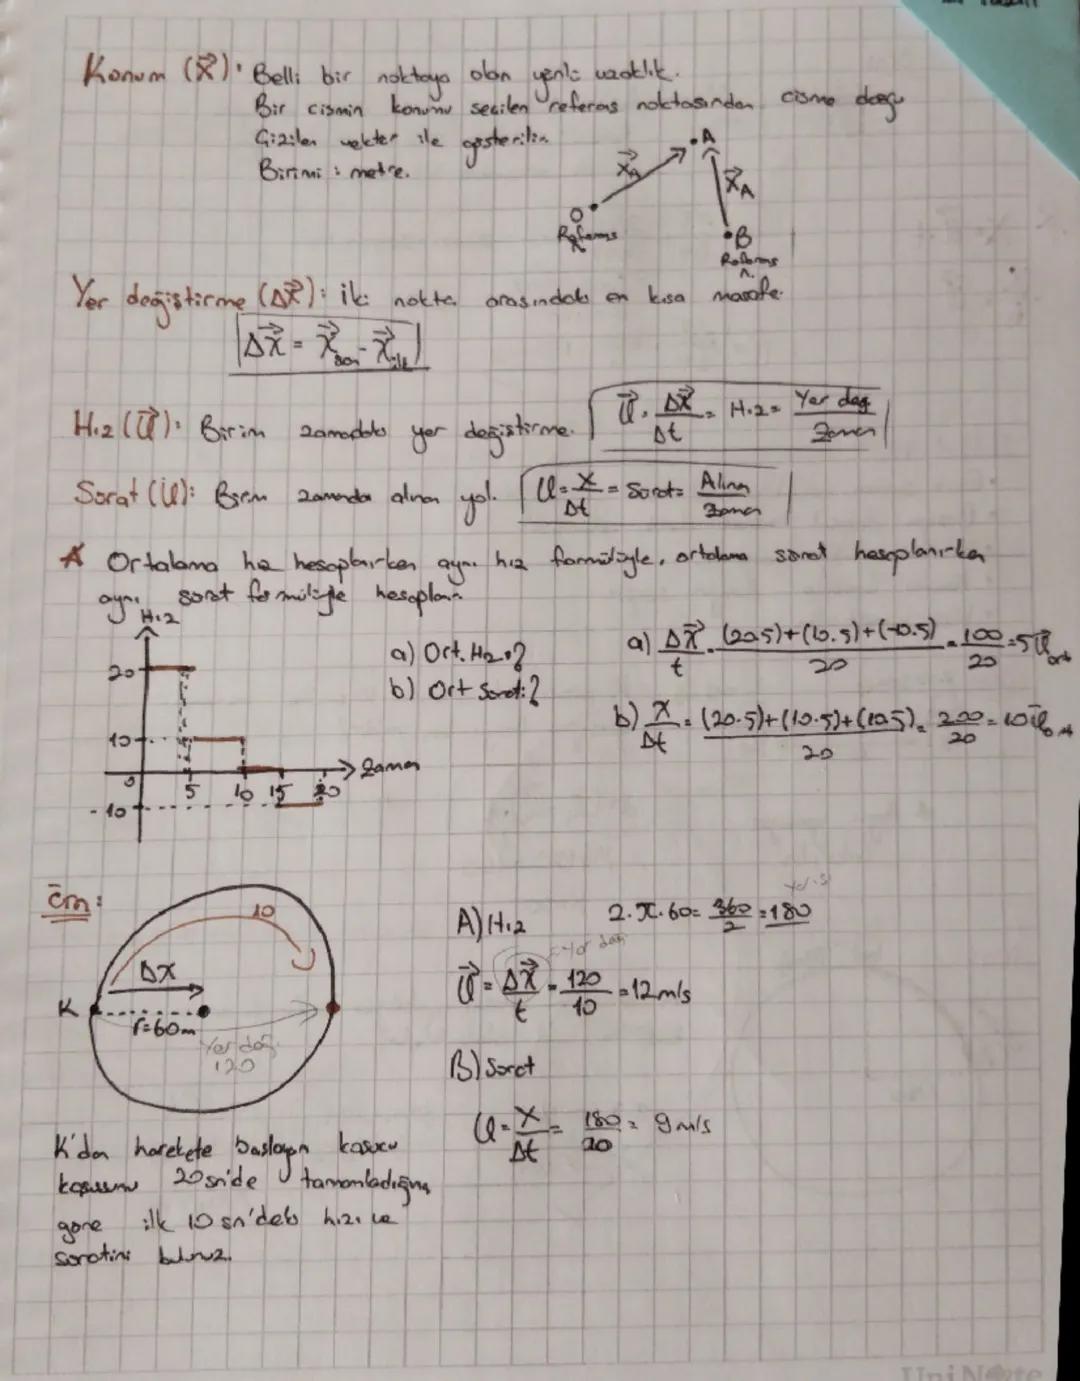 Konum (x⃗): Belli bir noktaya olan yönlü uzaklık.
Bir cismin konumu seçilen referans noktasından cisme doğru
Çizilen vektör ile gösterilir.
Birimi : metre.
.A
x⃗A
x⃗A
O
Referans
n.
•B
Referans
n.
Yer değiştirme (Δx⃗): İki nokta arasındaki en kısa mesafe.
Δx⃗ = x⃗son - x⃗ilk
Hız (ϑ⃗): Birim zamandaki yer değiştirme. ϑ⃗ = Δx⃗/Δt = Hız = Yer değ/Zaman
Sürat (ϑ): Birim zamanda alınan yol. ϑ = x/Δt = Sürat = Alınan/Zaman
* Ortalama hız hesaplarken aynı hız formülüyle, ortalama sürat hesaplanırken
aynı sürat formülüyle hesaplanır.
Hız
20
10
0
-10
5 10 15 20
Zaman
a) Ort. Hız:?
b) Ort Sürat:?
a) Δx⃗/t = (20.5)+(10.5)+(-10.5)/20 = 100/20 = 5 ϑ⃗ort
b) x/Δt = (20.5)+(10.5)+(10.5)/20 = 200/20 = 10 ϑort
Örn:
10
Δx
K
r=60m
Yer değ.
120
A) Hız
2.π.60 = 360/2 = 180
ϑ⃗ = Δx⃗/t = 120/10 = 12 m/s
Yer değ
B) Sürat
ϑ = x/Δt = 180/20 = 9 m/s
K'dan harekete başlayan koşucu
koşusunu 20 sn'de tamamladığına
göre ilk 10 sn'deki hızı ve
süratini bulunuz.
UniNote